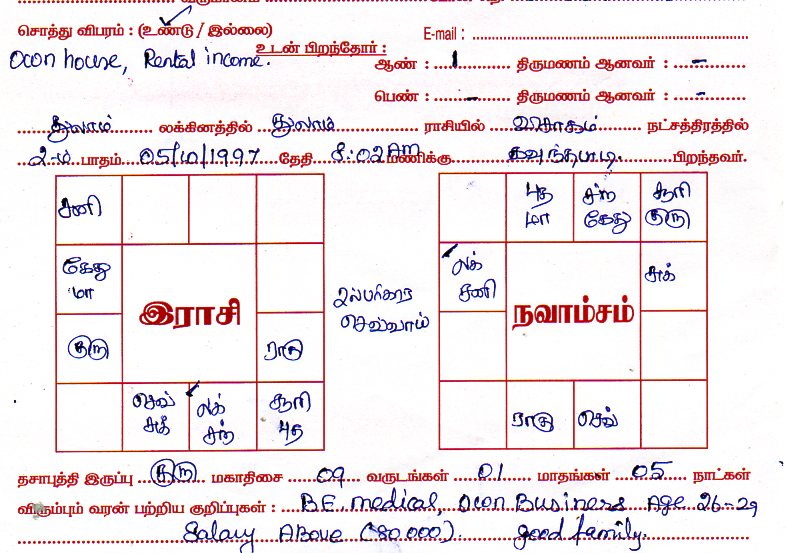 சொத்து விபரம் : (உண்டு / இல்லை)
E-mail :
Own house, Rental income.
உடன் பிறந்தோர் :
ஆண் : 1 திருமணம் ஆனவர் : -
பெண் : - திருமணம் ஆனவர் : -
துலாம் லக்கினத்தில் துலாம் ராசியில் விசாகம் நட்சத்திரத்தில்
2-ம் பாதம் 05/10/1997 தேதி 8:02 AM மணிக்கு கவுந்தபாடி. பிறந்தவர்.
சனி
கேது
மா
குரு
இராசி
ராகு
செவ்
சுக்
லக்
சந்
சூரி
புத
பரிகார
செவ்வாய்
புத
மா
சந்
கேது
சூரி
குரு
லக்
சனி
நவாம்சம்
சுக்
ராகு
செவ்
தசாபுத்தி இருப்பு குரு மகாதிசை 09 வருடங்கள் 01 மாதங்கள் 05 நாட்கள்
விரும்பும் வரன் பற்றிய குறிப்புகள் : B.E. medical, Own Business Age 26-29
Salary Above (80,000). good family.